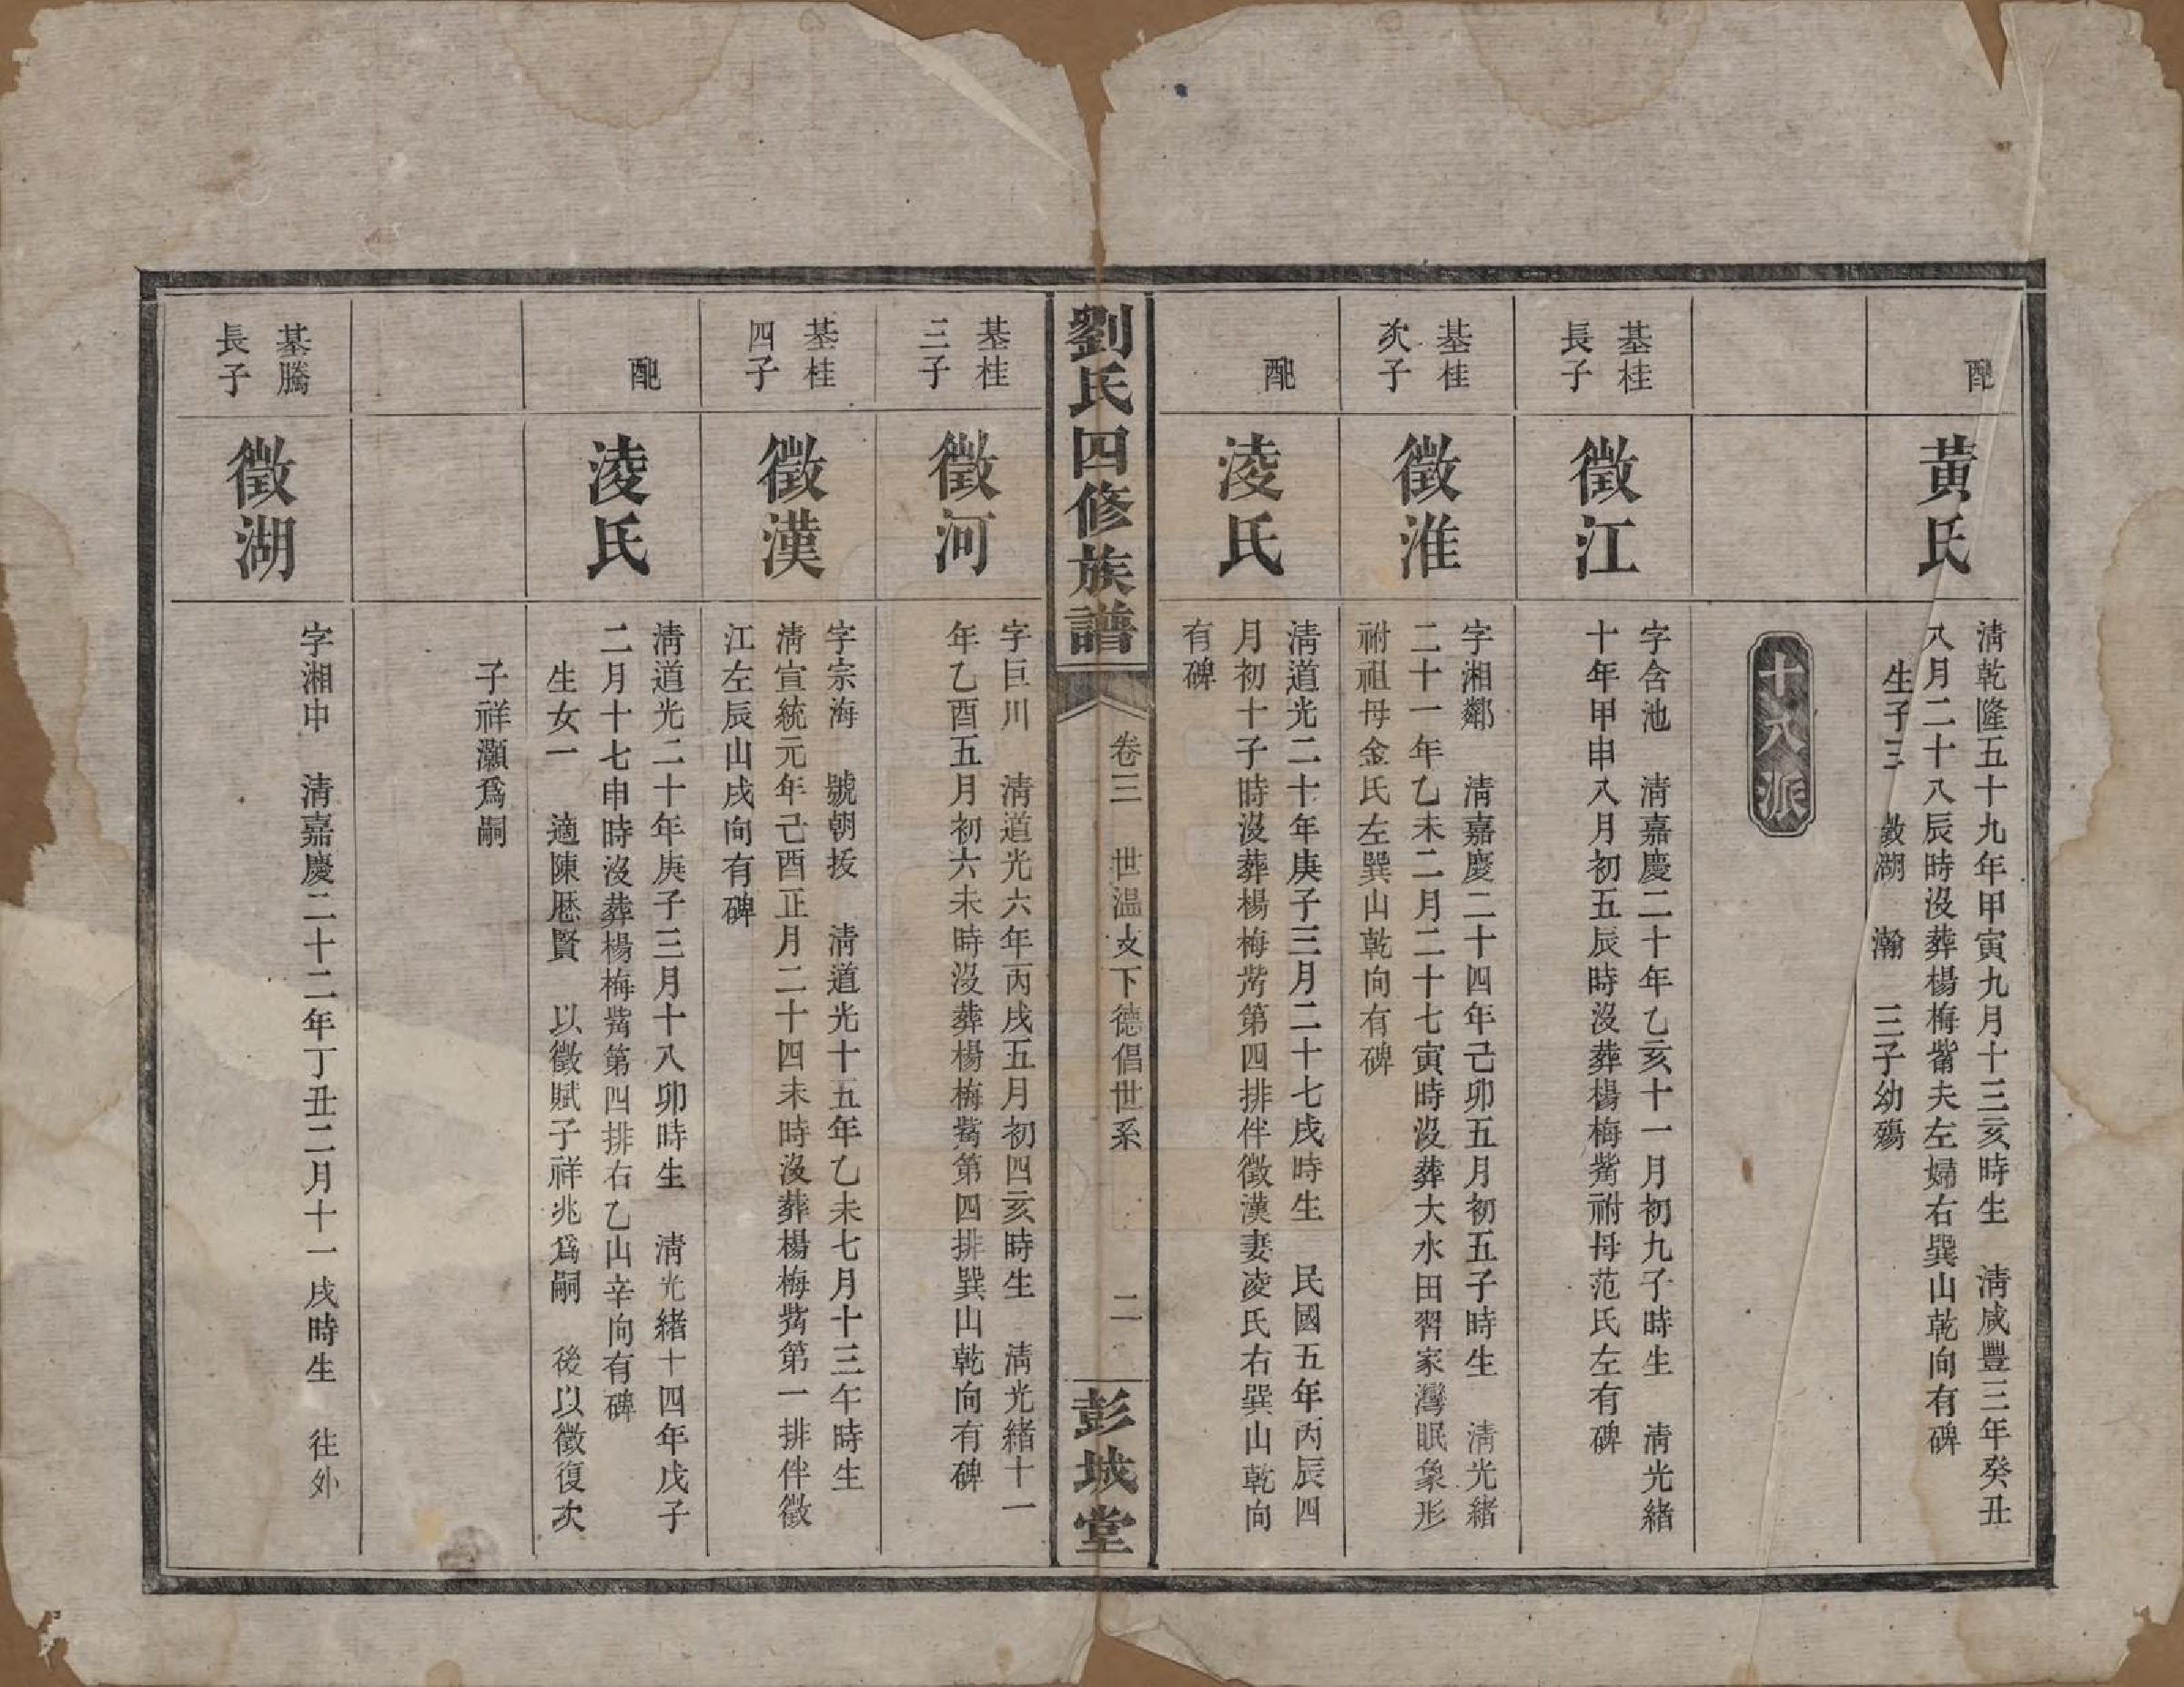 配
黃氏
清乾隆五十九年甲寅九月十三亥時生　清咸豐三年癸丑
八月二十八辰時沒葬楊梅觜夫左婦右巽山乾向有碑
生子三　教湖　瀚　三子幼殤
十八派
基桂
長子
徵江
字含池　清嘉慶二十年乙亥十一月初九子時生　清光緒
十年甲申八月初五辰時沒葬楊梅觜祔母范氏左有碑
基桂
次子
徵淮
字湘鄰　清嘉慶二十四年己卯五月初五子時生　清光緒
二十一年乙未二月二十七寅時沒葬大水田習家灣眠象形
祔祖母金氏左巽山乾向有碑
配
淩氏
清道光二十年庚子三月二十七戌時生　民國五年丙辰四
月初十子時沒葬楊梅觜第四排伴徵漢妻凌氏右巽山乾向
有碑
劉氏四修族譜
卷三　世溫支下德倡世系　二
彭城堂
基桂
三子
徵河
字巨川　清道光六年丙戌五月初四亥時生　清光緒十一
年乙酉五月初六未時沒葬楊梅觜第四排巽山乾向有碑
基桂
四子
徵漢
字宗海　號朝扳　清道光十五年乙未七月十三午時生
清宣統元年己酉正月二十四未時沒葬楊梅觜第一排伴徵
江左辰山戌向有碑
配
淩氏
清道光二十年庚子三月十八卯時生　清光緒十四年戊子
二月十七申時沒葬楊梅觜第四排右乙山辛向有碑
生女一　適陳厯賢　以徵賦子祥兆爲嗣　後以徵復次
子祥灝爲嗣
基騰
長子
徵湖
字湘中　清嘉慶二十二年丁丑二月十一戌時生　往外